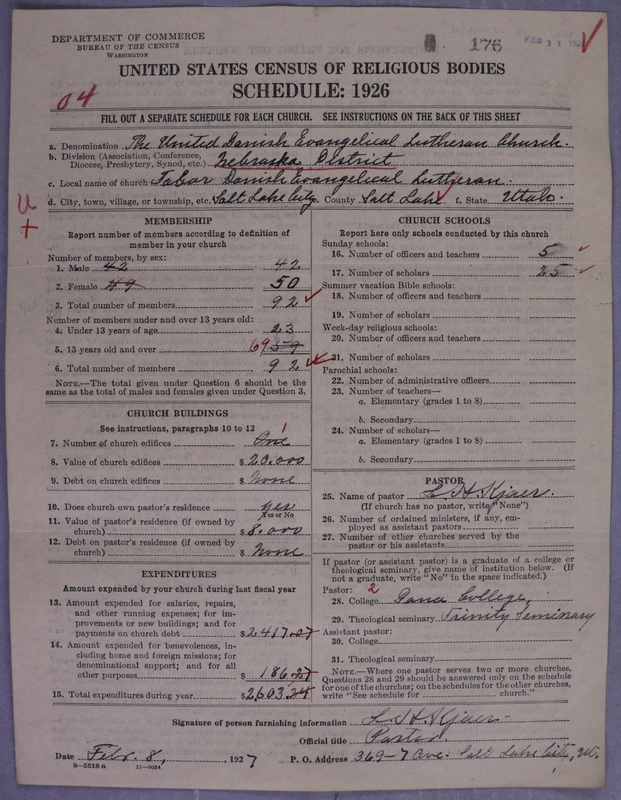 DEPARTMENT OF COMMERCE
BUREAU OF THE CENSUS
WASHINGTON
176
FEB 11
UNITED STATES CENSUS OF RELIGIOUS BODIES
SCHEDULE: 1926
04
FILL OUT A SEPARATE SCHEDULE FOR EACH CHURCH. SEE INSTRUCTIONS ON THE BACK OF THIS SHEET
a. Denomination The United Danish Evangelical Lutheran Church.
b. Division (Association, Conference, Diocese, Presbytery, Synod, etc.) Nebraska District
c. Local name of church Tabor Danish Evangelical Lutheran.
d. City, town, village, or township, etc. Salt Lake City e. County Salt Lake f. State Utah.
MEMBERSHIP
Report number of members according to definition of
member in your church
Number of members, by sex:
1. Male 42 42
2. Female 49 50
3. Total number of members 92
Number of members under and over 13 years old:
4. Under 13 years of age 23
5. 13 years old and over 69 59
6. Total number of members 92
NOTE.—The total given under Question 6 should be the
same as the total of males and females given under Question 3.
CHURCH BUILDINGS
See instructions, paragraphs 10 to 12
7. Number of church edifices One 1
8. Value of church edifices $ 20.000
9. Debt on church edifices $ None
10. Does church own pastor's residence yes
Yes or No
11. Value of pastor's residence (if owned by
church) $ 8.000
12. Debt on pastor's residence (if owned by
church) $ None
EXPENDITURES
Amount expended by your church during last fiscal year
13. Amount expended for salaries, repairs,
and other running expenses; for im-
provements or new buildings; and for
payments on church debt $ 2417.07
14. Amount expended for benevolences, in-
cluding home and foreign missions; for
denominational support; and for all
other purposes $ 186.27
15. Total expenditures during year $ 2,603.34
CHURCH SCHOOLS
Report here only schools conducted by this church
Sunday schools:
16. Number of officers and teachers 5
17. Number of scholars 25
Summer vacation Bible schools:
18. Number of officers and teachers
19. Number of scholars
Week-day religious schools:
20. Number of officers and teachers
21. Number of scholars
Parochial schools:
22. Number of administrative officers
23. Number of teachers—
a. Elementary (grades 1 to 8)
b. Secondary
24. Number of scholars—
a. Elementary (grades 1 to 8)
b. Secondary
PASTOR
25. Name of pastor L. H. Kjaer.
(If church has no pastor, write "None")
26. Number of ordained ministers, if any, em-
ployed as assistant pastors
27. Number of other churches served by the
pastor or his assistants
If pastor (or assistant pastor) is a graduate of a college or
theological seminary, give name of institution below. (If
not a graduate, write "No" in the space indicated.)
Pastor: 2
28. College Dana College,
29. Theological seminary Trinity Seminary
Assistant pastor:
30. College
31. Theological seminary
NOTE.—Where one pastor serves two or more churches,
Questions 28 and 29 should be answered only on the schedule
for one of the churches; on the schedules for the other churches,
write "See schedule for church."
Signature of person furnishing information L. H. Kjaer.
Official title Pastor.
Date Febr. 8, 1927 P. O. Address 369-7 Ave. Salt Lake City, Ut.
8-5518a 11-9084